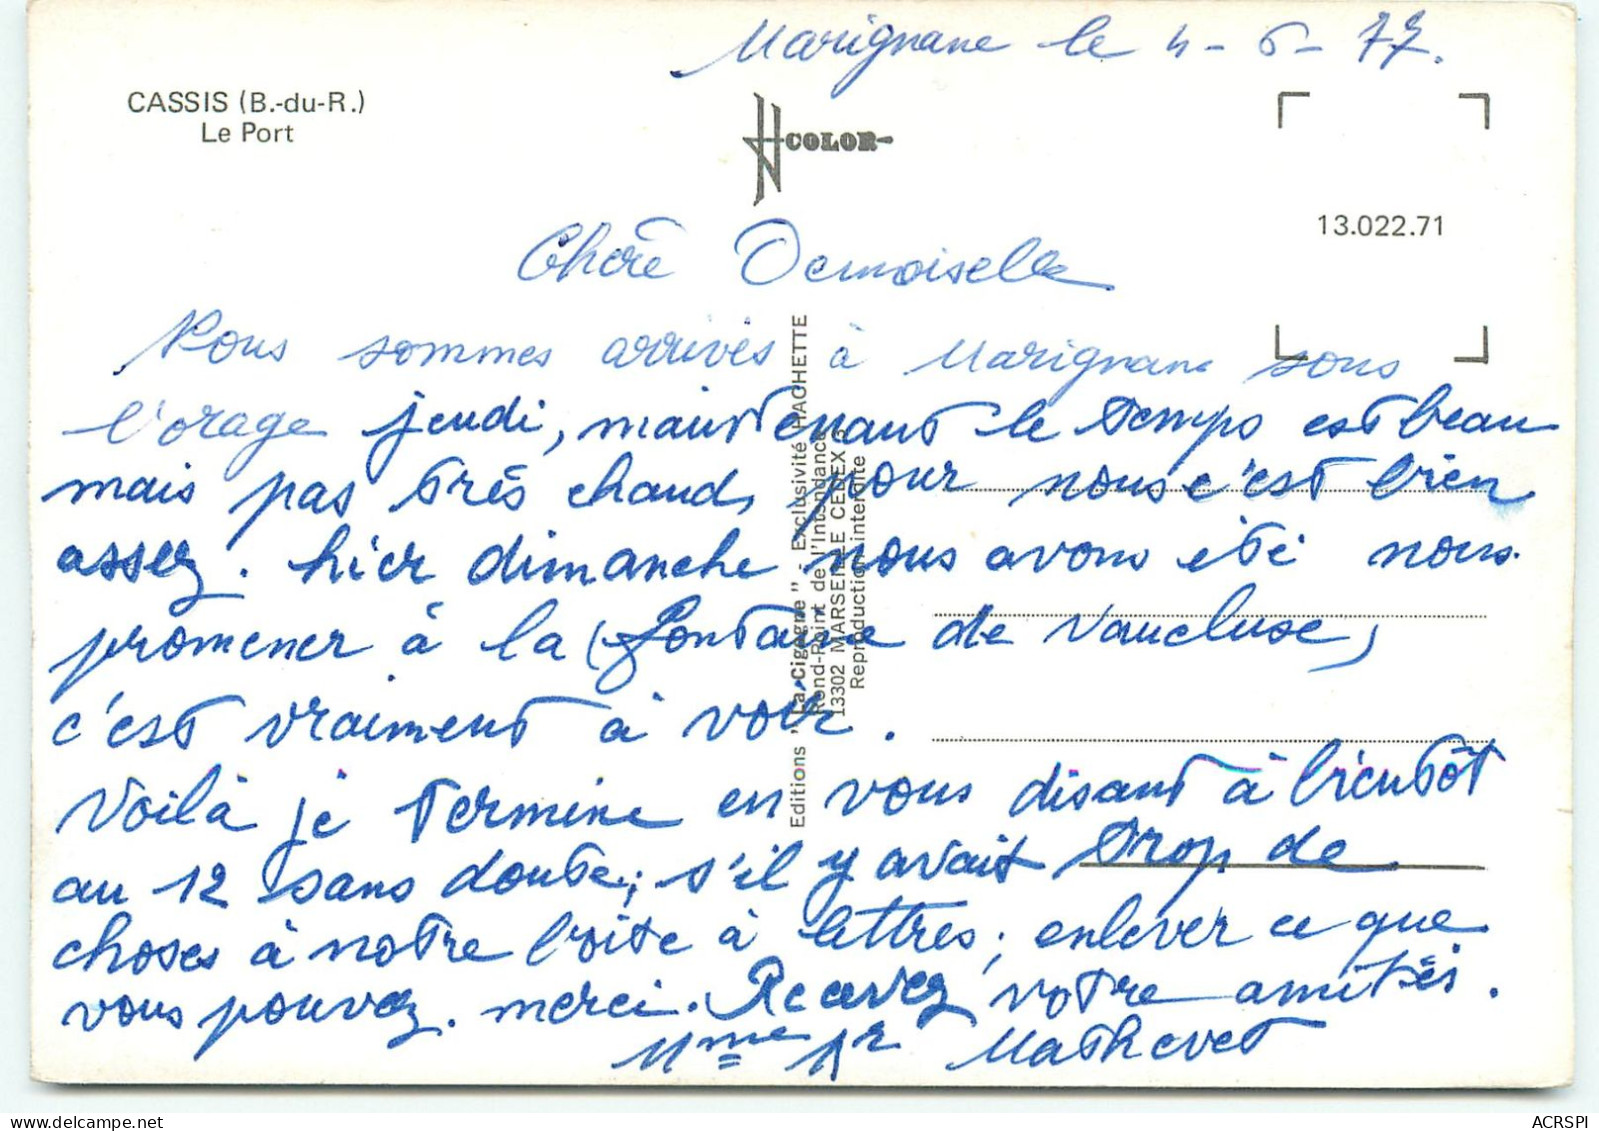 Marignane le 4-6-77.
CASSIS (B.-du-R.)
Le Port
COLOR
13.022.71
Chère Demoiselle
Nous sommes arrivés à Marignane sous
l'orage jeudi, maintenant le temps est beau
mais pas très chaud, pour nous c'est bien
assez. hier dimanche nous avons été nous
promener à la (fontaine de Vaucluse)
c'est vraiment à voir.
Voilà je termine en vous disant à bientôt
au 12 sans doute; s'il y avait trop de
choses à notre boite à lettres; enlever ce que
vous pouvez. merci. Recevez votre amitiés.
Mme Mr Mathevet
Editions "La Cigogne" - Exclusivité HACHETTE
Rond-Point de l'Intendance
13302 MARSEILLE CEDEX 3
Reproduction interdite
ACRSPI